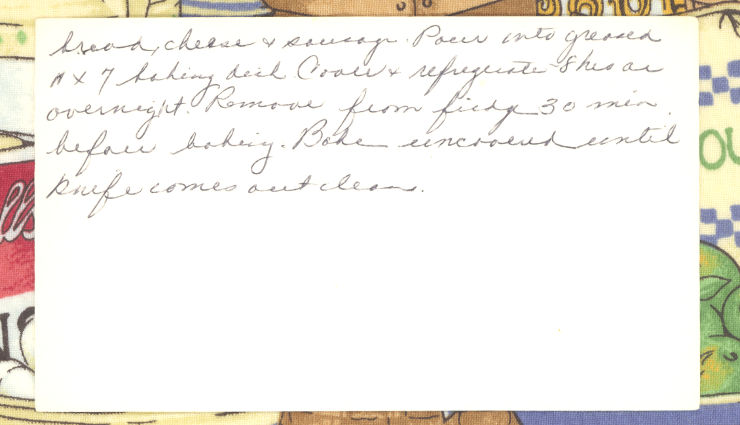 bread, cheese & sausage. Pour into greased
11 x 7 baking dish Cover & refregerate 8 hrs or
overnight. Remove from fridg 30 min.
before baking. Bake uncovered until
knife comes out clean.